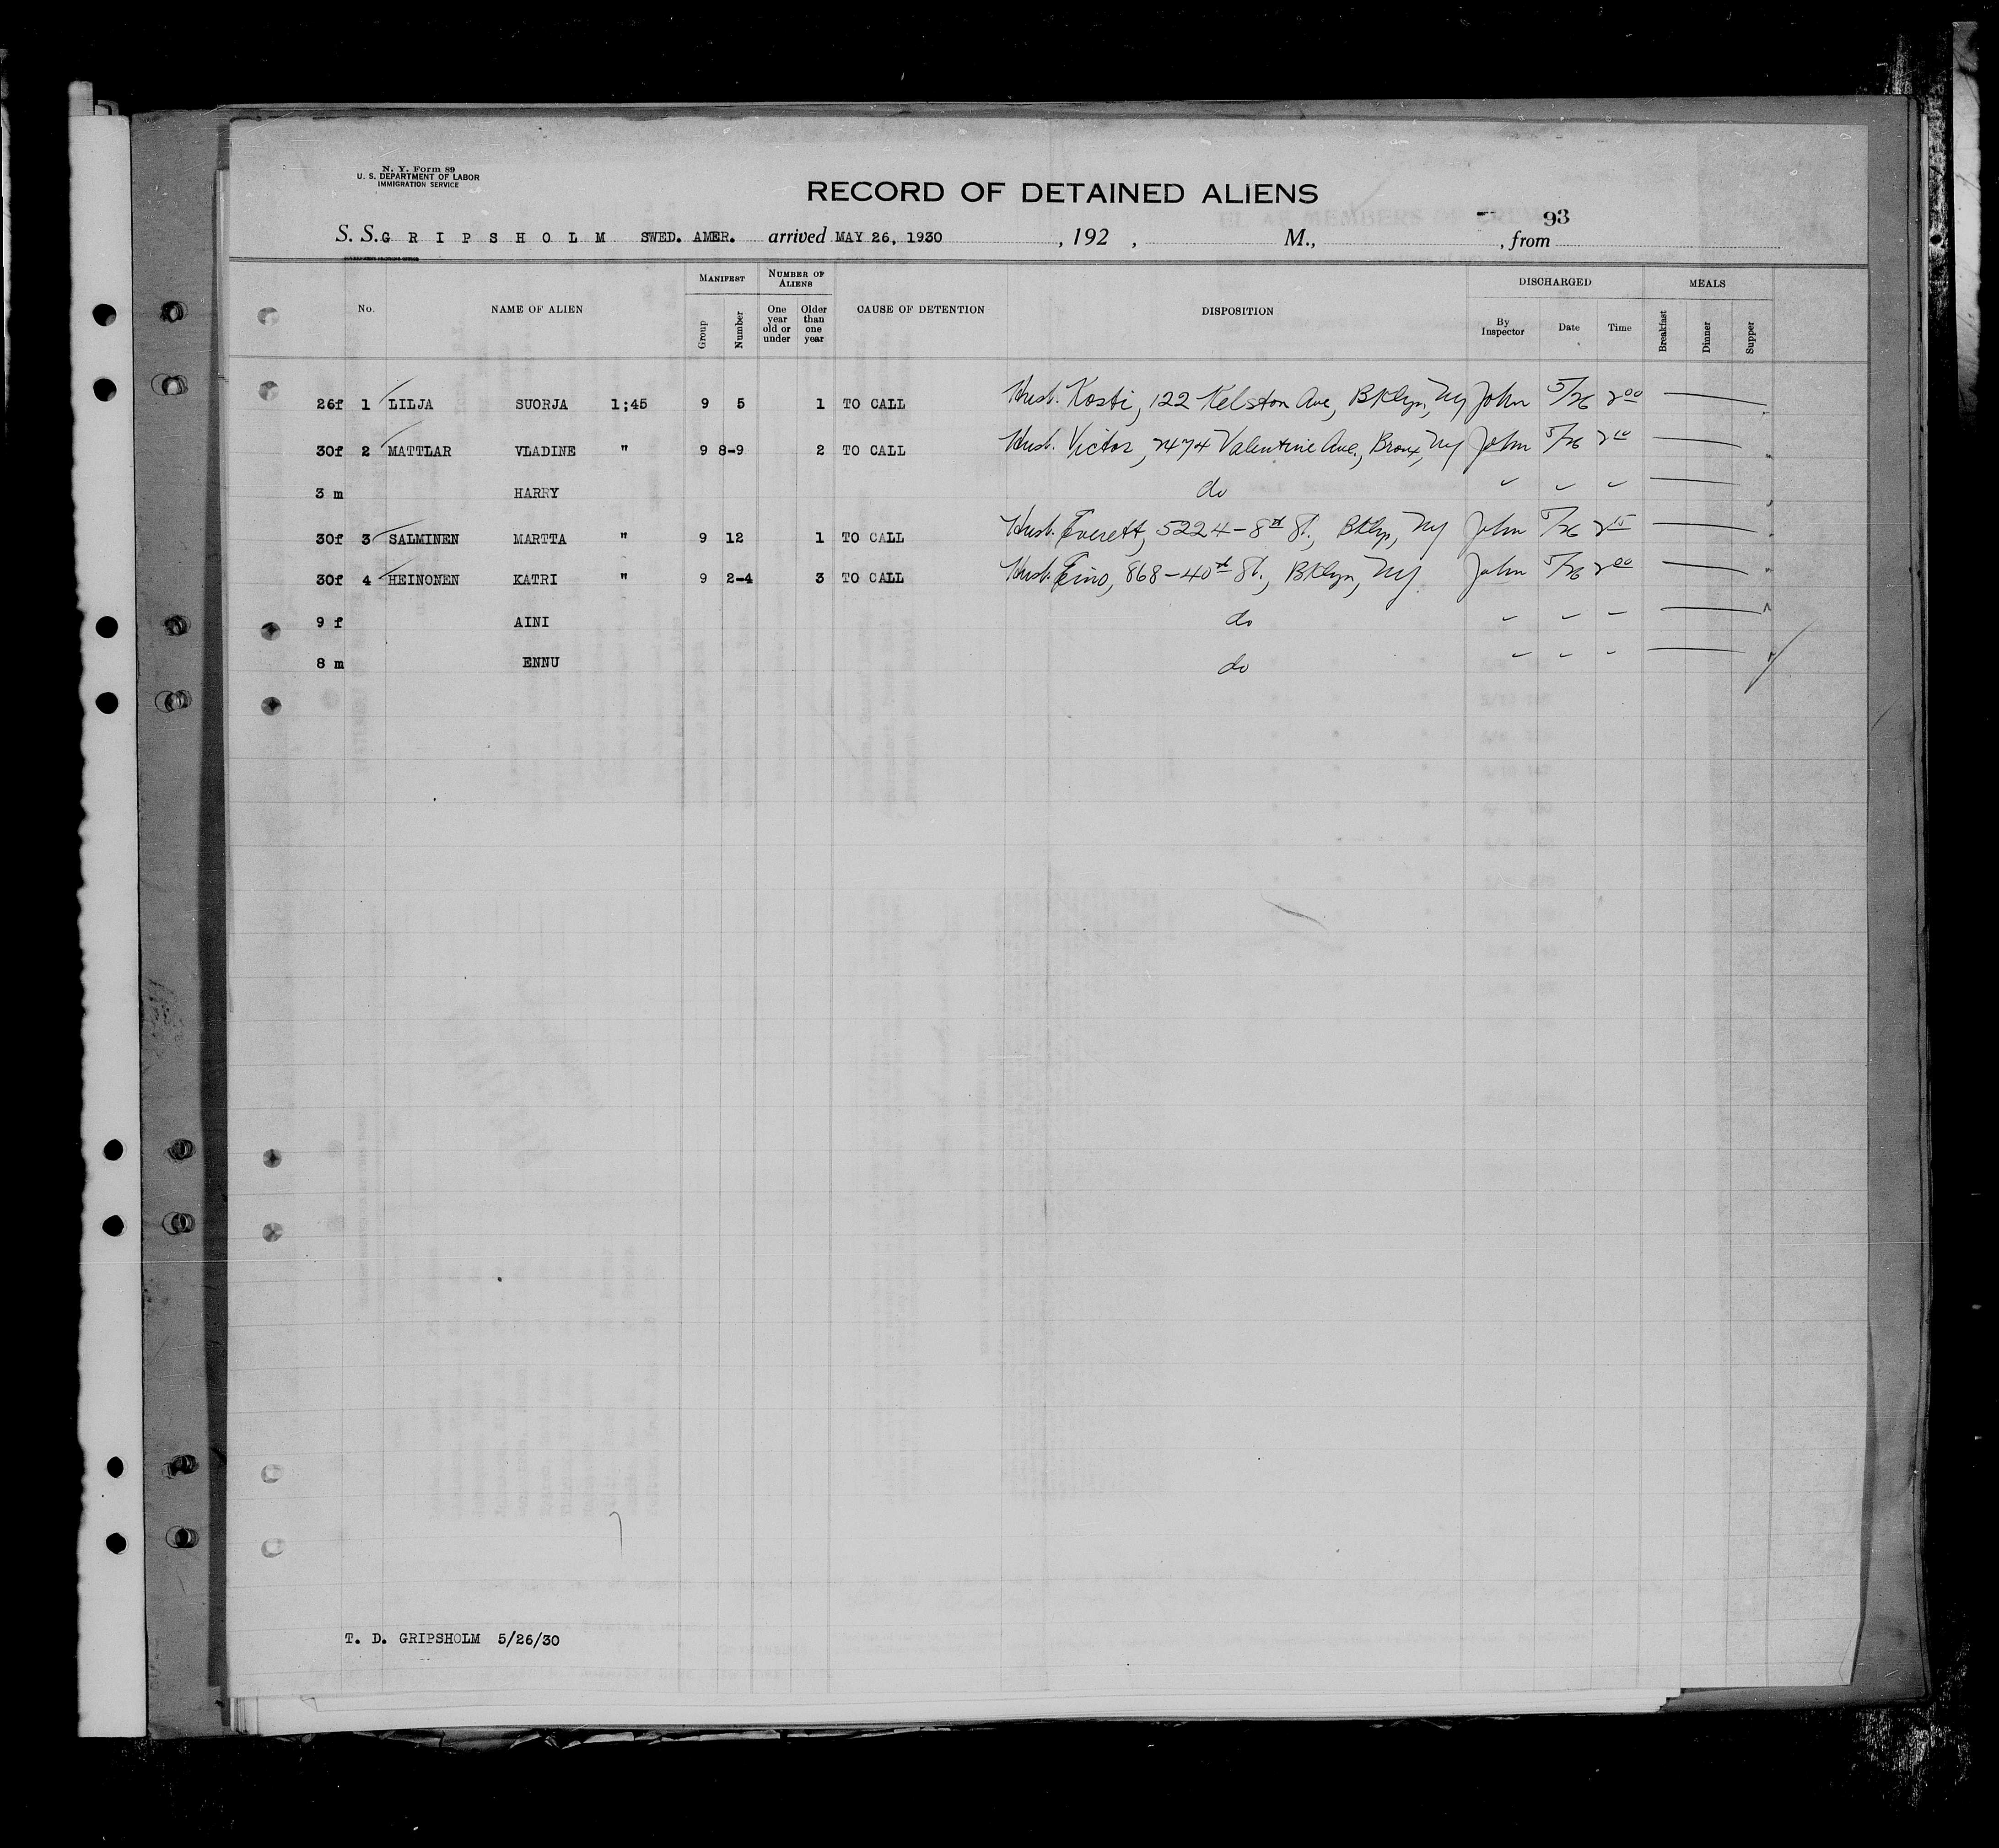 N. Y. Form 89
U. S. DEPARTMENT OF LABOR
IMMIGRATION SERVICE
RECORD OF DETAINED ALIENS
93
S. S. G R I P S H O L M SWED. AMER. arrived MAY 26, 1930 , 192 , M., , from
No. NAME OF ALIEN MANIFEST Group Number NUMBER OF ALIENS One year old or under Older than one year CAUSE OF DETENTION DISPOSITION DISCHARGED By Inspector Date Time MEALS Breakfast Dinner Supper
26f 1 LILJA SUORJA 1;45 9 5 1 TO CALL Husb. Kosti, 122 Kelston Ave, Bklyn, Ny John 5/26 2 00
30f 2 MATTLAR VLADINE " 9 8-9 2 TO CALL Husb. Victor, 2474 Valentine Ave., Bronx, Ny John 5/26 2 10
3 m HARRY do
30f 3 SALMINEN MARTTA " 9 12 1 TO CALL Husb. Everett, 5224-8th St., Bklyn, Ny John 5/26 2 15
30f 4 HEINONEN KATRI " 9 2-4 3 TO CALL Husb. Eino, 868-40th St., Bklyn, Ny. John 5/26 2 00
9 f AINI do
8 m ENNU do
T. D. GRIPSHOLM 5/26/30